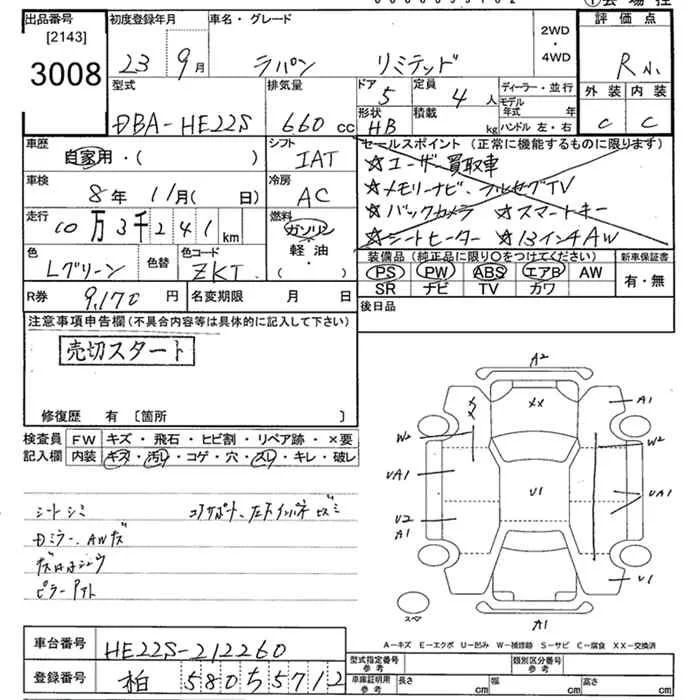 出品番号 初度登録年月 車名・グレード 評価点
[2143]
3008
23 9月 ラパン リミテッド 2WD・4WD
型式 排気量 ドア 5 定員 4人 ディーラー・並行 外装 内装
モデル年式 年
DBA-HE22S 660cc 形状 HB 積載 kg ハンドル 左・右 C C
車歴 自家用・( ) シフト IAT セールスポイント (正常に機能するものに限ります)
☆ユーザー買取車
車検 8年 11月( 日) 冷房 AC ☆メモリーナビ、フルセグTV
☆バックカメラ ☆スマートキー
走行 10万3千241km 燃料 ガソリン・軽油・( ) ☆シートヒーター ☆13インチAW
色 Lグリーン 色替 色コード ZKT 装備品 (純正品に限り〇をつけてください) 新車保証書
PS PW ABS エアB AW 有・無
SR ナビ TV カワ
R券 9,170円 名変期限 月 日 後日品
注意事項申告欄 (不具合内容等は具体的に記入して下さい)
売切スタート
修復歴 有 〔箇所 〕
検査員記入欄 FW キズ・飛石・ヒビ割・リペア跡・×要
内装 キズ・汚レ・コゲ・穴・スレ・キレ・破レ
シートシミ
Dミラー、AWキズ
A2
XX
XX
A1
W2
W2
UA1
U1
UA1
U2
A1
U1
スペア
A1
A-キズ E-エクボ U-凹み W-補修跡 S-サビ C-腐食 XX-交換済
車台番号 HE22S-212260
登録番号 柏 580 5712
型式指定番号 参考 類別区分番号 参考
車庫証明用 参考 長さ cm 幅 cm 高さ cm